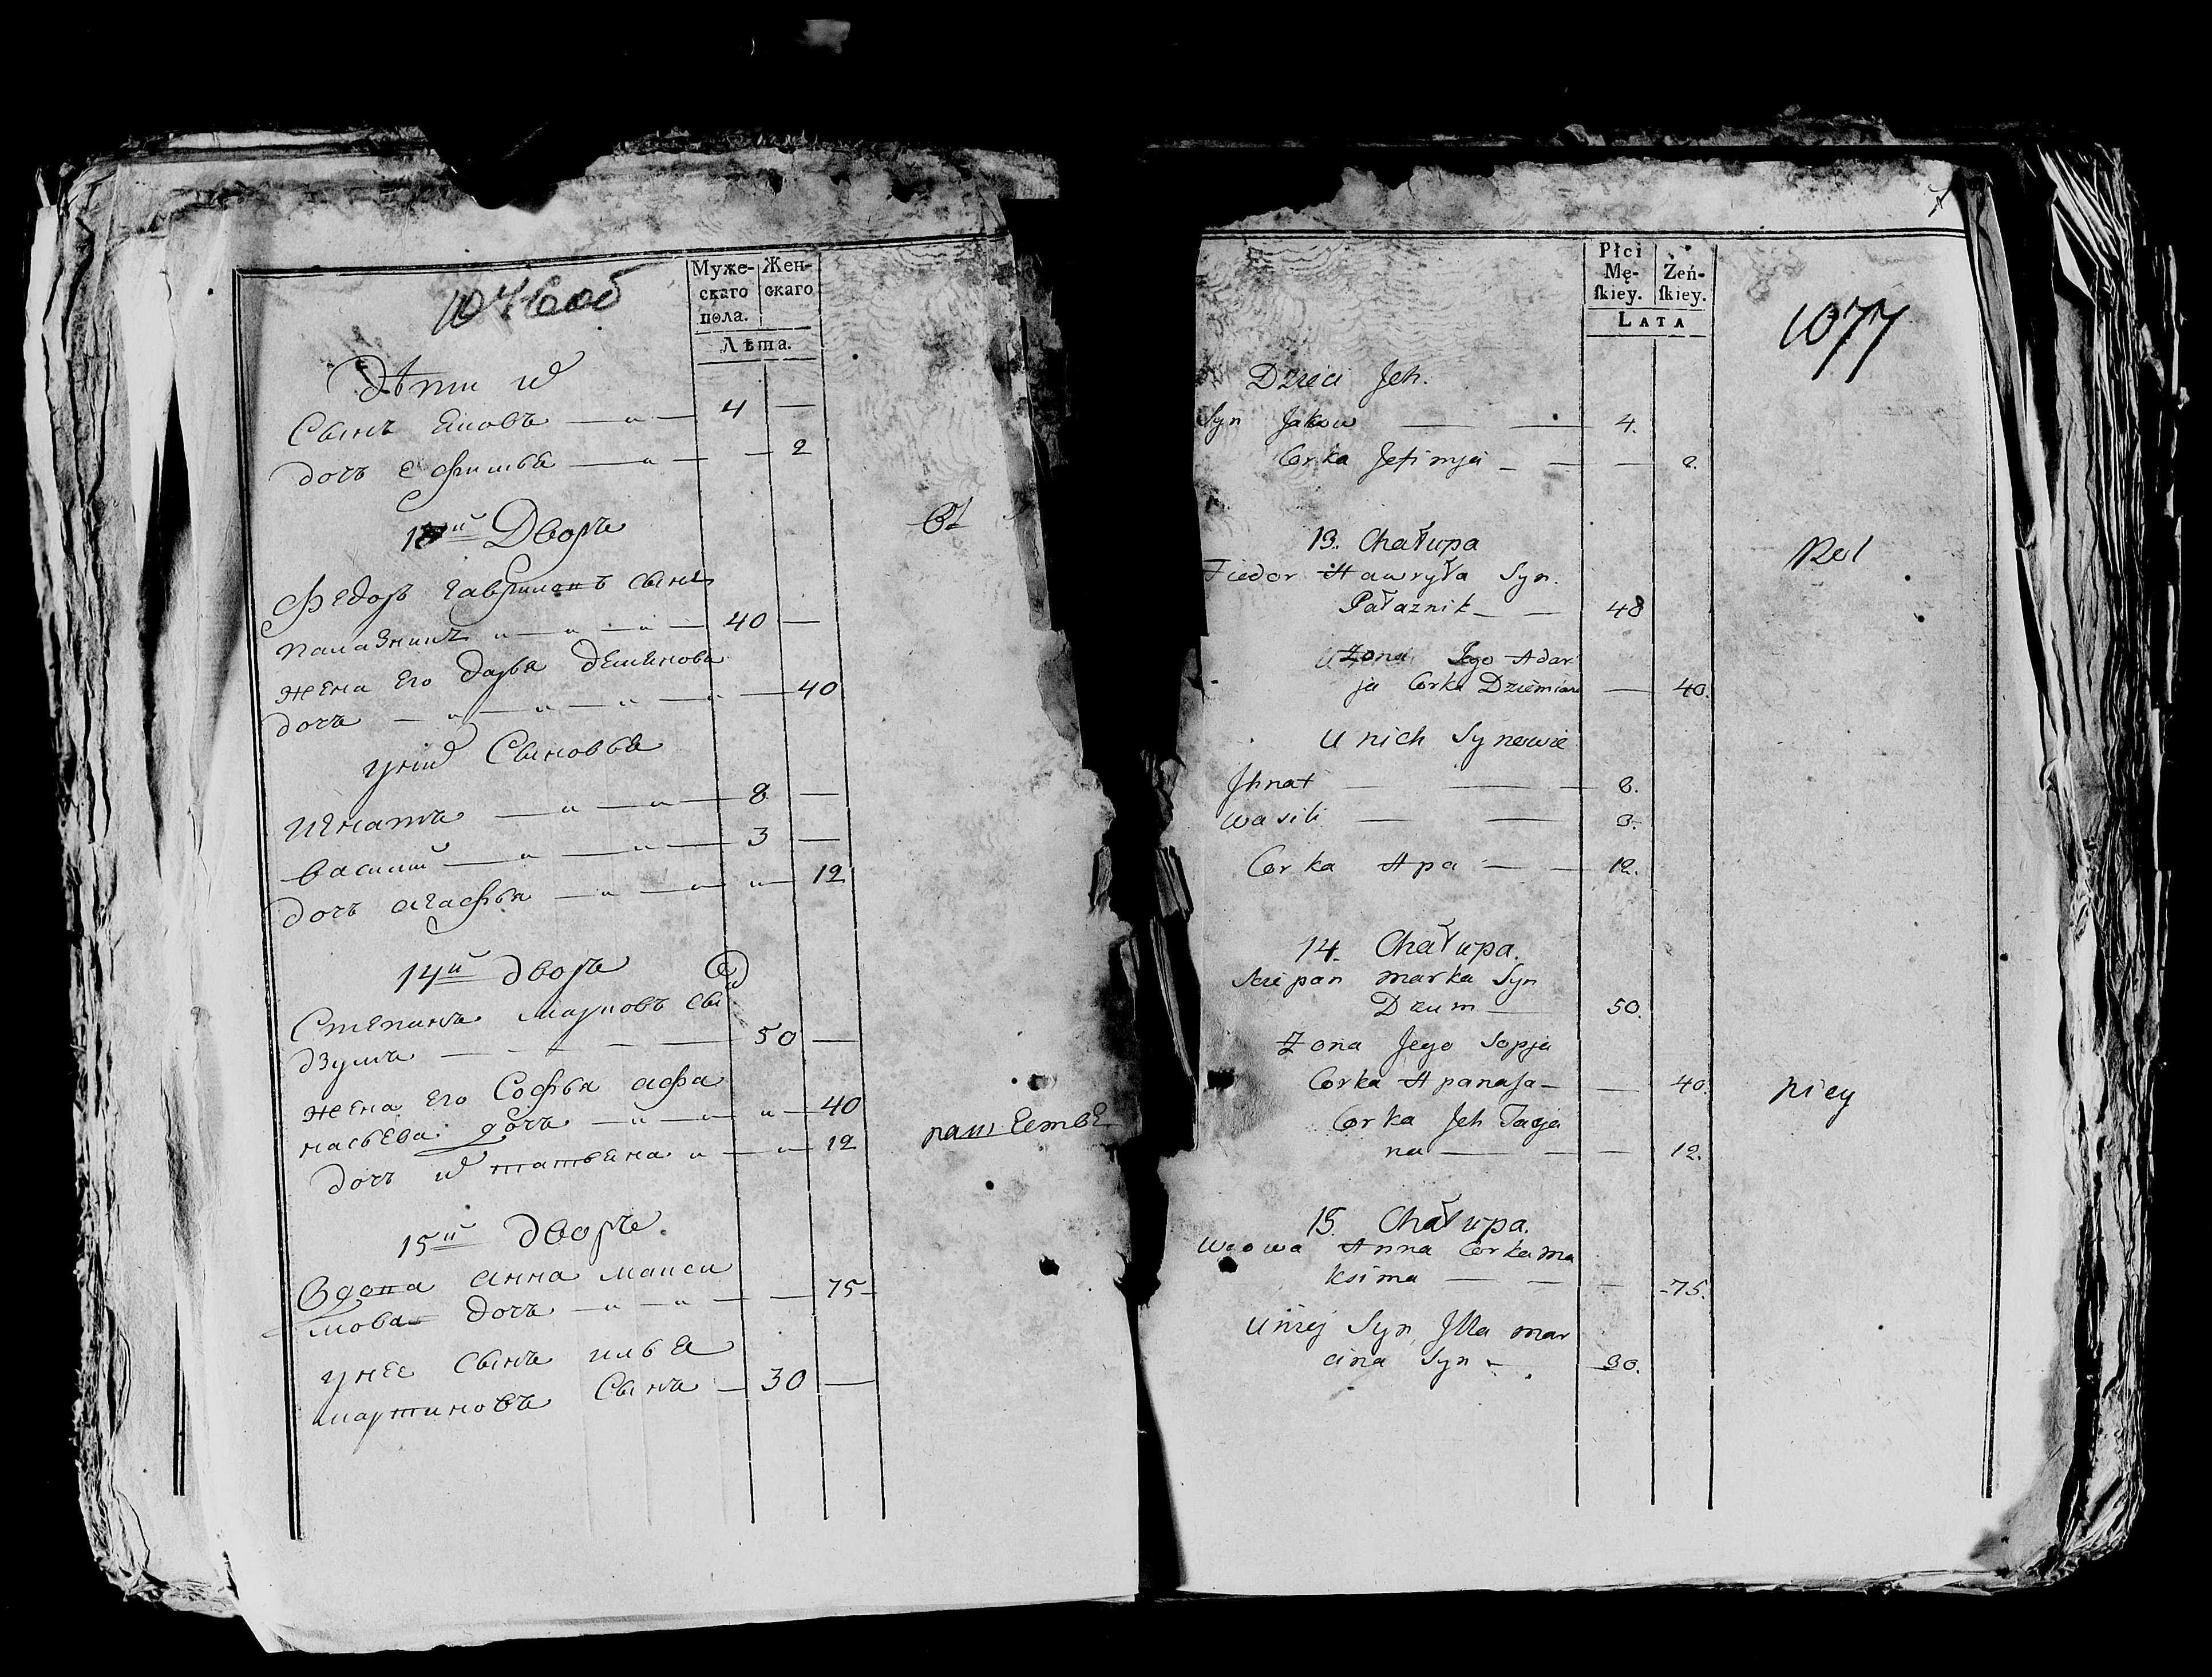 Муже-
скаго
пола.
Жен-
скаго
Лѣта.
Дѣти и
Сынъ Яковъ 4 —
дочь Ефимья — 2
13й Дворъ
Федоръ Гавриловъ сынъ
Палазникъ 40 —
жена его Дарья Деменова
дочъ — 40
у них Сыновья
Игнатъ 8 —
Василий 3 —
дочъ Агафья — 12
14й дворъ
Степанъ Марковъ сы
Дзумъ 50 —
жена его Софья Афа
насьева дочъ — 40
дочъ их татьяна — 12
15й дворъ.
Вдова Анна Макси
мова дочъ — 75
у нее сынъ илья
мартиновъ Сынъ 30 —
Płci
Mę-
ſkiey.
Zeń-
ſkiey.
LATA
1077
Dzieci Jch.
Syn Jakow — 4.
Corka Jefimja — 2.
13. Chałupa
Fiedor Hawryła Syn.
Pałaznik — 48
Żona Jego Adar
ja Corka Dziemian — 40.
U nich Synowie
Jhnat — 8.
Wasili — 3.
Corka Apa — 12.
14. Chałupa.
Sciepan Marka Syn
Dzum — 50.
Żona Jego Sopja
Corka Apanaſa — 40.
Corka Jch Tacja
na — 12.
15. Chałupa.
Wdowa Anna Corka Ma
ksima — 75.
U niej Syn Jlla Mar
cina Syn — 30.